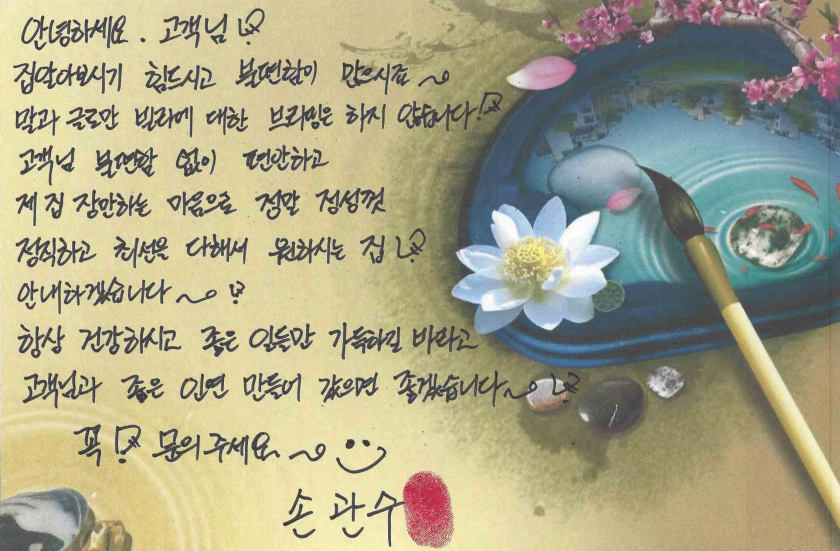 안녕하세요. 고객님!
집알아보시기 힘드시고 불편함이 많으시죠~
말과 글로만 빌라에 대한 브리핑은 하지 않습니다!
고객님 불편함 없이 편안하고
제 집 장만하는 마음으로 정말 정성껏
정직하고 최선을 다해서 원하시는 집!
안내하겠습니다~!
항상 건강하시고 좋은 일들만 가득하길 바라고
고객님과 좋은 인연 만들어 갔으면 좋겠습니다~!
꼭! 문의주세요~
손관수